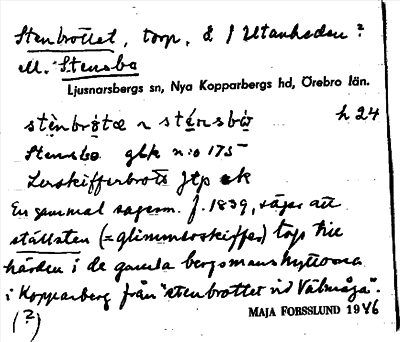 Stenbrottet, torp, & / Utanheden?
el. Stensbo
Ljusnarsbergs sn, Nya Kopparbergs hd, Örebro län.
stènbròtœ ~ sténsbó h 24
Stensbo gbk n:o 175
Lerskifferbrott Jtp ek
En gammal sagesm. f. 1839, säger att
ställsten (=glimmerskiffer) togs till
härden i de gamla bergsmanshyttorna
i Kopparberg från "stenbrottet vid Välmåga".
(?)
MAJA FORSSLUND 1946